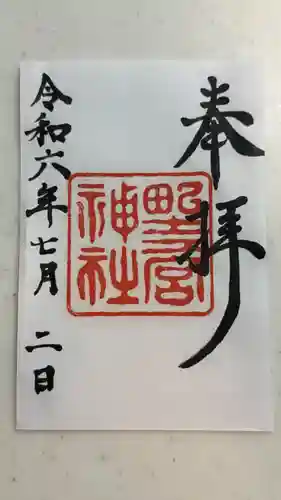 奉拝
野宮
神社
令和六年七月二日